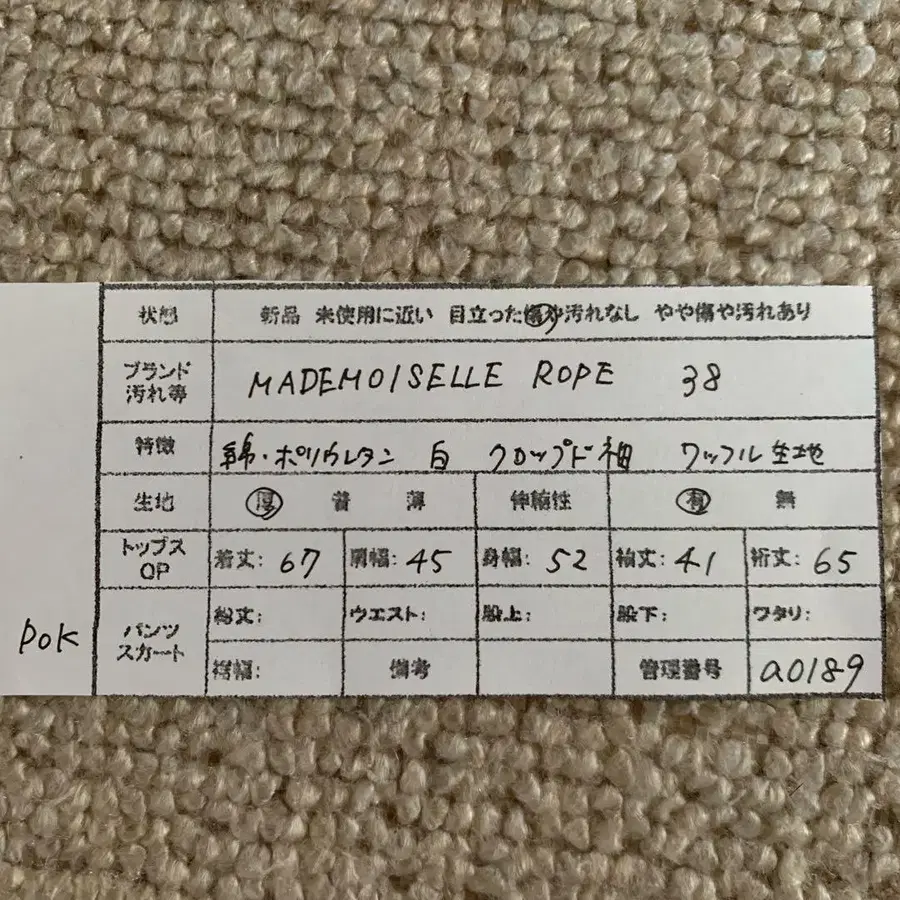 状態 新品 未使用に近い 目立った傷や汚れなし やや傷や汚れあり
ブランド
汚れ等
MADEMOISELLE ROPE 38
特徴 綿・ポリウレタン 白 クロップド袖 ワッフル生地
生地 厚 普 薄 伸縮性 有 無
トップス
OP
着丈: 67 肩幅: 45 身幅: 52 袖丈: 41 裄丈: 65
パンツ
スカート
総丈: ウエスト: 股上: 股下: ワタリ:
裾幅: 備考 管理番号 a0189
pok